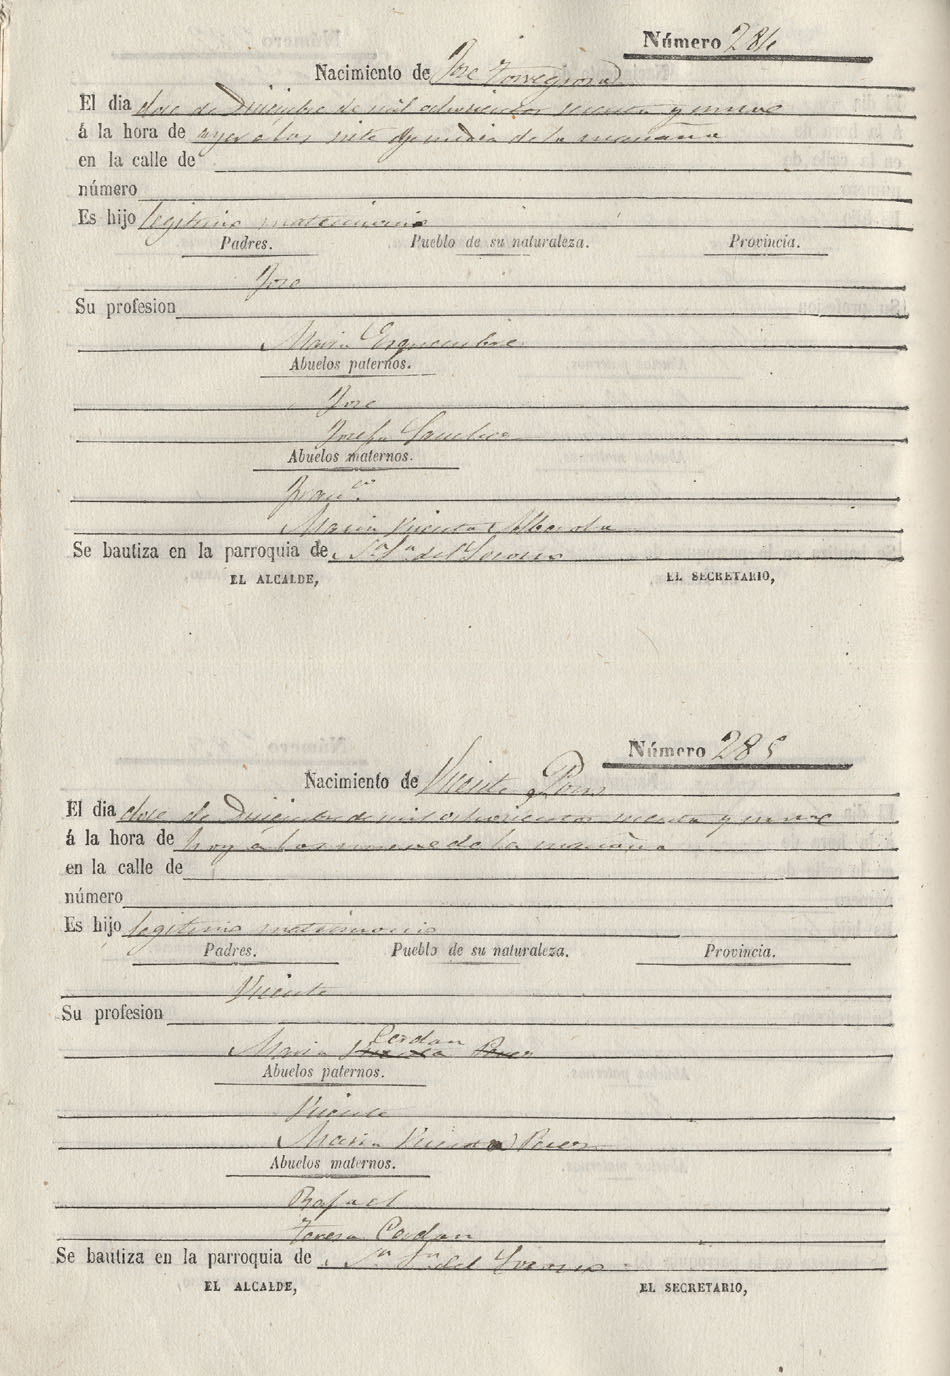 Número 284
Nacimiento de Jose Torregrosa
El dia dose de Diciembre de mil ochosientos sesenta y nueve
á la hora de ayer a las siete y media de la mañana
en la calle de
número
Es hijo legitimo matrimonio
Padres. Pueblo de su naturaleza. Provincia.
Jose
Su profesion
Maria Esquembre
Abuelos paternos.
Jose
Josefa Sanchez
Abuelos maternos.
Franco
Maria Vicenta Alberola
Se bautiza en la parroquia de Sta Ma del Socorro
EL ALCALDE, EL SECRETARIO,
Número 285
Nacimiento de Vicente Pons
El dia dose de Diciembre de mil ochosientos sesenta y nueve
á la hora de hoy a las nueve de la mañana
en la calle de
número
Es hijo legitimo matrimonio
Padres. Pueblo de su naturaleza. Provincia.
Vicente
Su profesion
Maria Cerdan
Abuelos paternos.
Vicente
Maria Vicenta
Abuelos maternos.
Rafael
Teresa Cerdan
Se bautiza en la parroquia de del Socorro
EL ALCALDE, EL SECRETARIO,